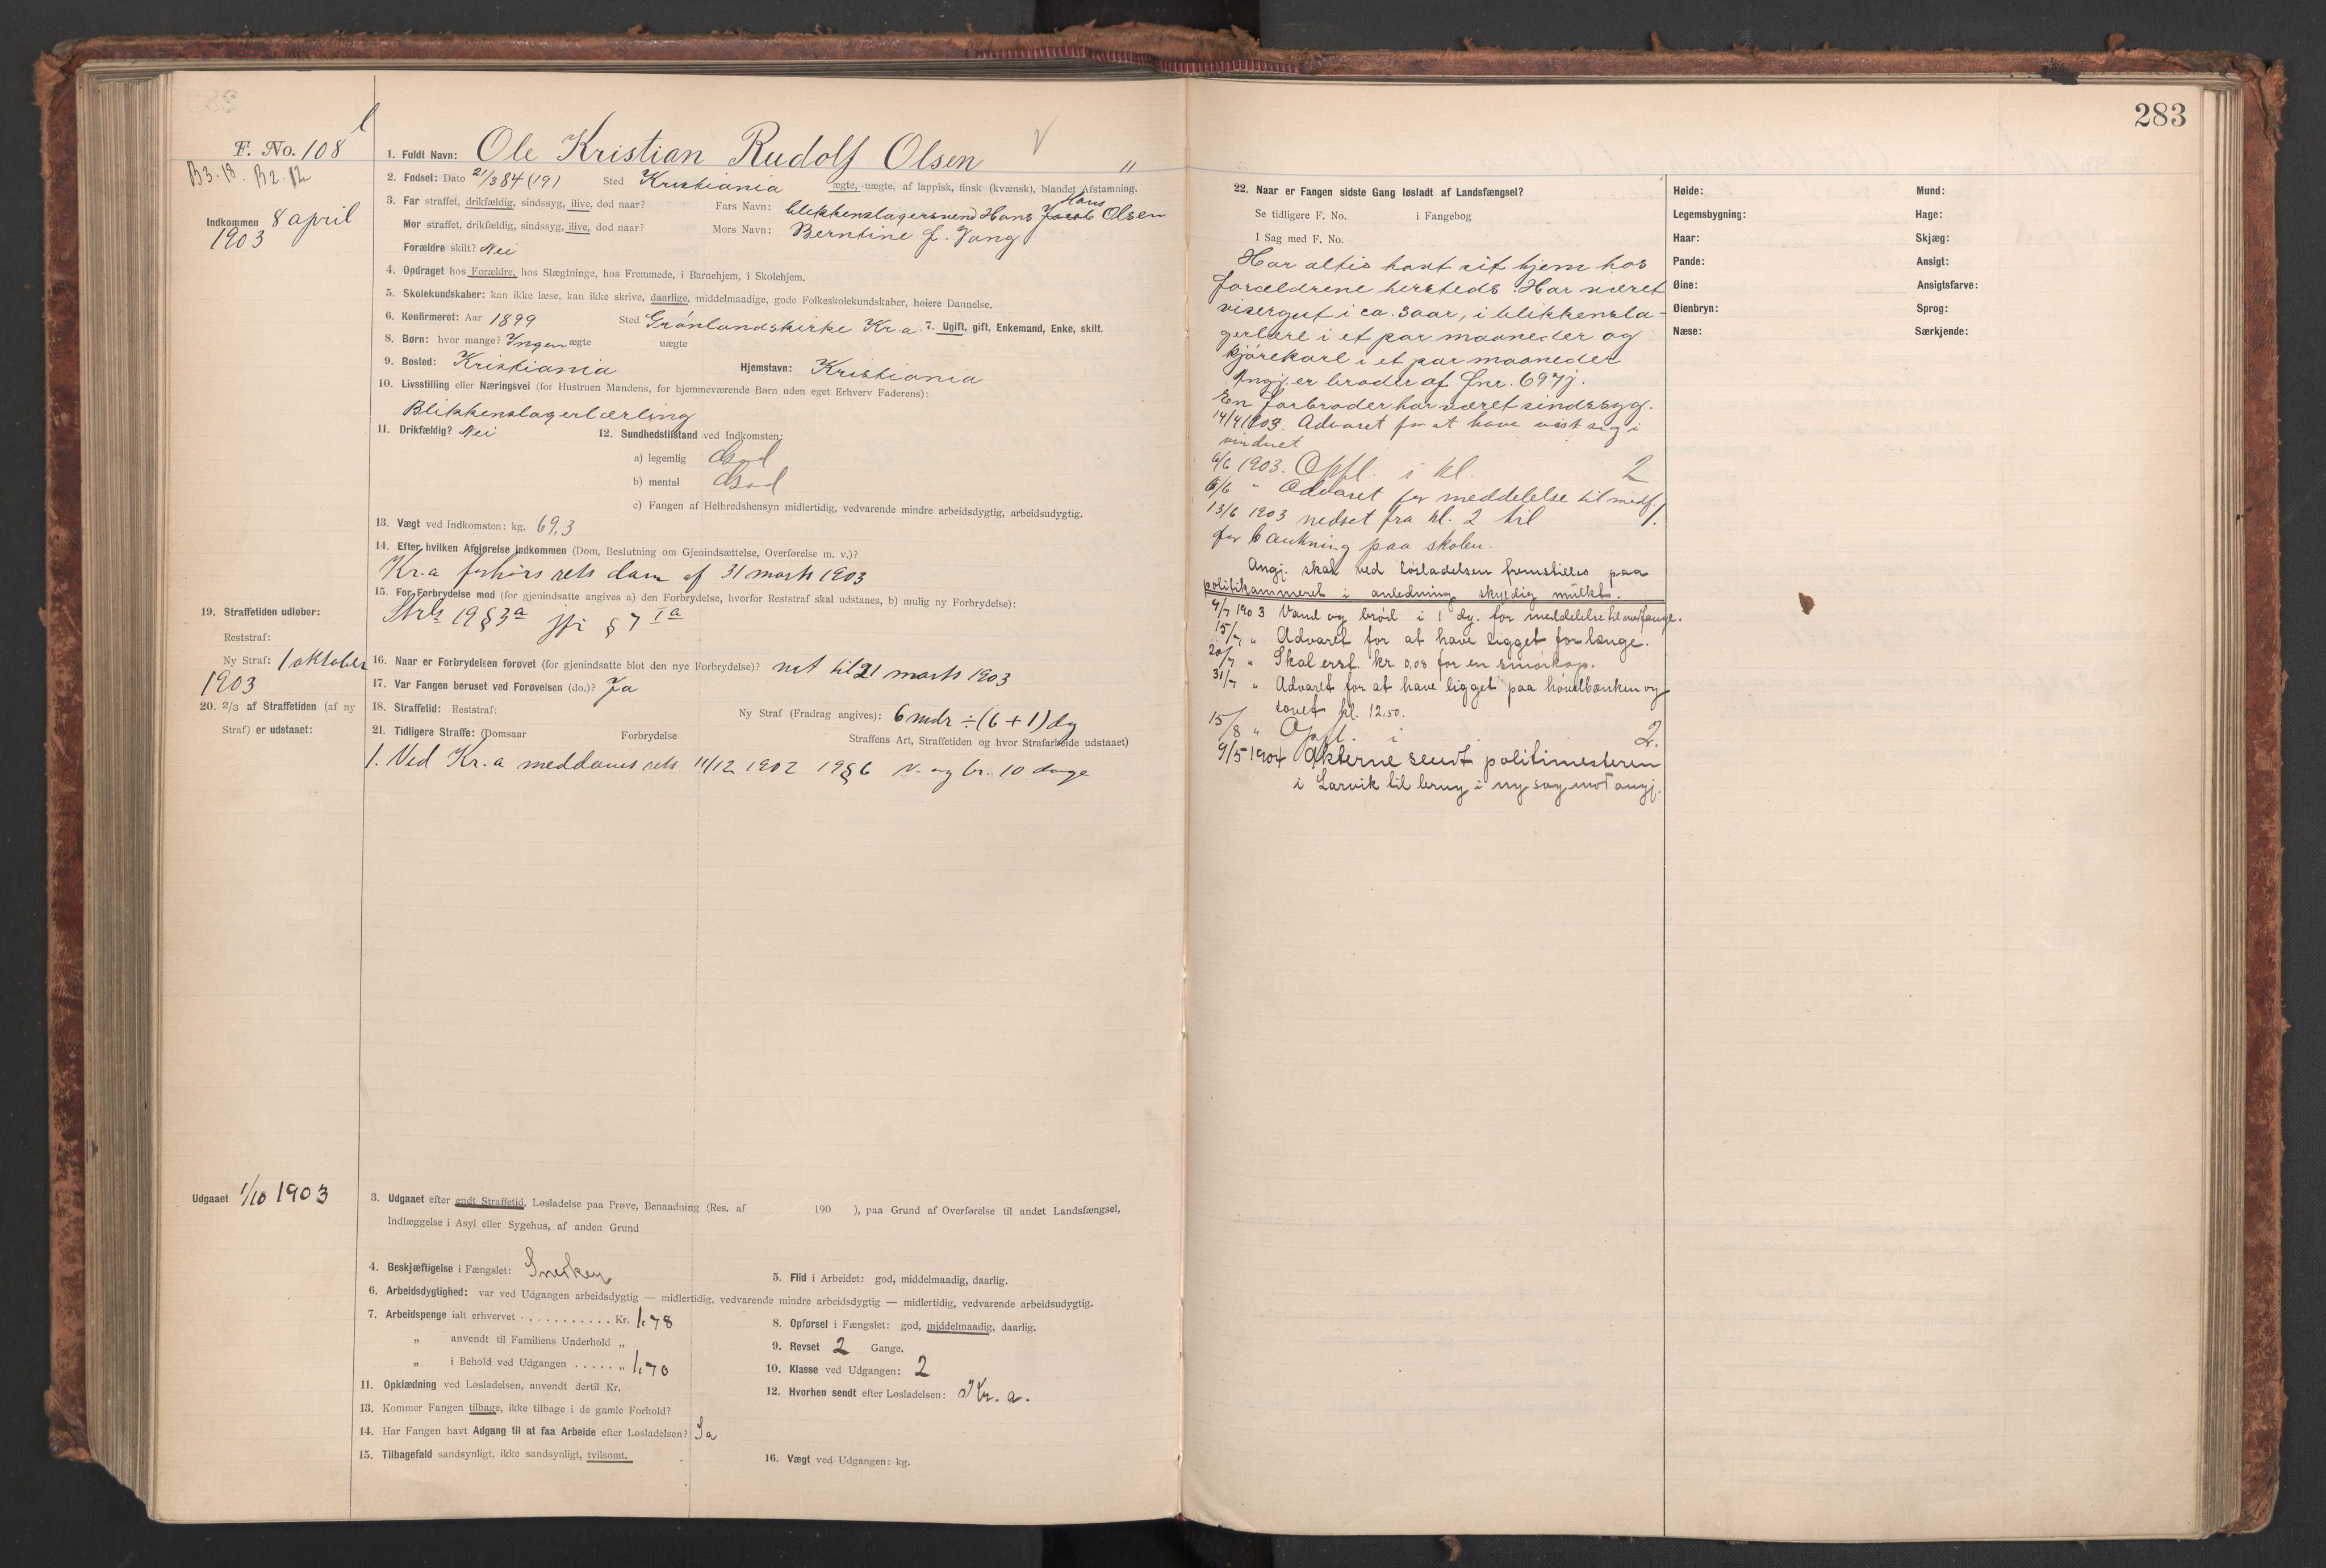 283
F. No. 108 l
B3.18. B2.12
Indkommen 8 april
1903
1. Fuldt Navn: Ole Kristian Rudolf Olsen
2. Fødsel: Dato 21/3 84 (19) Sted Kristiania ægte, uægte, af lappisk, finsk (kvænsk), blandet Afstamning.
3. Far straffet, drikfældig, sindssyg, ilive, død naar? Fars Navn: blikkenslagersvend Hans Jacob Olsen
Hans
Mor straffet, drikfældig, sindssyg, ilive, død naar? Mors Navn: Berntine f. Vang
Forældre skilt? Nei
4. Opdraget hos Forældre, hos Slægtninge, hos Fremmede, i Barnehjem, i Skolehjem.
5. Skolekundskaber: kan ikke læse, kan ikke skrive, daarlige, middelmaadige, gode Folkeskolekundskaber, høiere Dannelse.
6. Konfirmeret: Aar 1899 Sted Grønlandskirke Kr.a. 7. Ugift, gift, Enkemand, Enke, skilt.
8. Børn: hvor mange? Ingen ægte uægte
9. Bosted: Kristiania Hjemstavn: Kristiania
10. Livsstilling eller Næringsvei (for Hustruen Mandens, for hjemmeværende Børn uden eget Erhverv Faderens):
Blikkenslagerlærling
11. Drikfældig? Nei 12. Sundhedstilstand ved Indkomsten:
a) legemlig God
b) mental God
c) Fangen af Helbredshensyn midlertidig, vedvarende mindre arbeidsdygtig, arbeidsudygtig.
13. Vægt ved Indkomsten: kg. 69,3
14. Efter hvilken Afgjørelse indkommen (Dom, Beslutning om Gjenindsættelse, Overførelse m. v.)?
Kr.a forhørs rets dom af 31 marts 1903
15. For Forbrydelse mod (for gjenindsatte angives a) den Forbrydelse, hvorfor Reststraf skal udstaaes, b) mulig ny Forbrydelse):
Strl 19 § 3a jfr § 7 Ia
19. Straffetiden udløber:
Reststraf:
Ny Straf: 1 oktober
1903
20. 2/3 af Straffetiden (af ny
Straf) er udstaaet:
16. Naar er Forbrydelsen forøvet (for gjenindsatte blot den nye Forbrydelse)? nat til 21 marts 1903
17. Var Fangen beruset ved Forøvelsen (do.)? Ja
18. Straffetid: Reststraf: Ny Straf (Fradrag angives): 6 mdr ÷ (6+1) dg
21. Tidligere Straffe: (Domsaar Forbrydelse Straffens Art, Straffetiden og hvor Strafarbeide udstaaet)
1. Ved Kr.a meddoms rets 11/12 1902 19 § 6 v. og br. 10 dage
Udgaaet 1/10 1903
3. Udgaaet efter endt Straffetid, Løsladelse paa Prøve, Benaadning (Res. af 190 ), paa Grund af Overførelse til andet Landsfængsel,
Indlæggelse i Asyl eller Sygehus, af anden Grund
4. Beskjæftigelse i Fængslet: Snedker
5. Flid i Arbeidet: god, middelmaadig, daarlig.
6. Arbeidsdygtighed: var ved Udgangen arbeidsdygtig — midlertidig, vedvarende mindre arbeidsdygtig — midlertidig, vedvarende arbeidsudygtig.
7. Arbeidspenge ialt erhvervet . . . . . . . . . . . Kr. 1.78
8. Opførsel i Fængslet: god, middelmaadig, daarlig.
„ anvendt til Familiens Underhold „
9. Revset 2 Gange.
„ i Behold ved Udgangen . . . . . „ 1.70
10. Klasse ved Udgangen: 2
11. Opklædning ved Løsladelsen, anvendt dertil Kr.
12. Hvorhen sendt efter Løsladelsen: Kr. a.
13. Kommer Fangen tilbage, ikke tilbage i de gamle Forhold?
14. Har Fangen havt Adgang til at faa Arbeide efter Løsladelsen? Ja
15. Tilbagefald sandsynligt, ikke sandsynligt, tvilsomt.
16. Vægt ved Udgangen: kg.
22. Naar er Fangen sidste Gang løsladt af Landsfængsel?
Se tidligere F. No. i Fangebog
I Sag med F. No.
Har altid havt sit hjem hos
forældrene hersteds. Har været
visergut i ca. 3 aar, i blikkensla-
gerlære i et par maaneder og
kjørekarl i et par maaneder
Angj. er broder af fnr. 697 j.
En farbroder har været sindssyg.
14/4 1903. Advaret for at have vist sig i
vinduet
6/6 1903. Opfl. i kl. 2
6/6 " Advaret for meddelelse til medf.
13/6 1903 nedset fra kl. 2 til 1.
for bankning paa skolen.
Angj. skal ved løsladelsen fremstilles paa
politikammeret i anledning skyldig mulkt.
4/7 1903 Vand og brød i 1 dg. for meddelelse til medfange.
15/7 " Advaret for at have ligget for længe.
20/7 " Skal erst. kr. 0,08 for en smørkop.
31/7 " Advaret for at have ligget paa høvelbænken og
sovet kl. 12.50.
15/8 " Opfl. i 2.
9/5 1904 Akterne sendt politimesteren
i Larvik til brug i ny sag mod angj.
Høide: Mund:
Legemsbygning: Hage:
Haar: Skjæg:
Pande: Ansigt:
Øine: Ansigtsfarve:
Øienbryn: Sprog:
Næse: Særkjende: